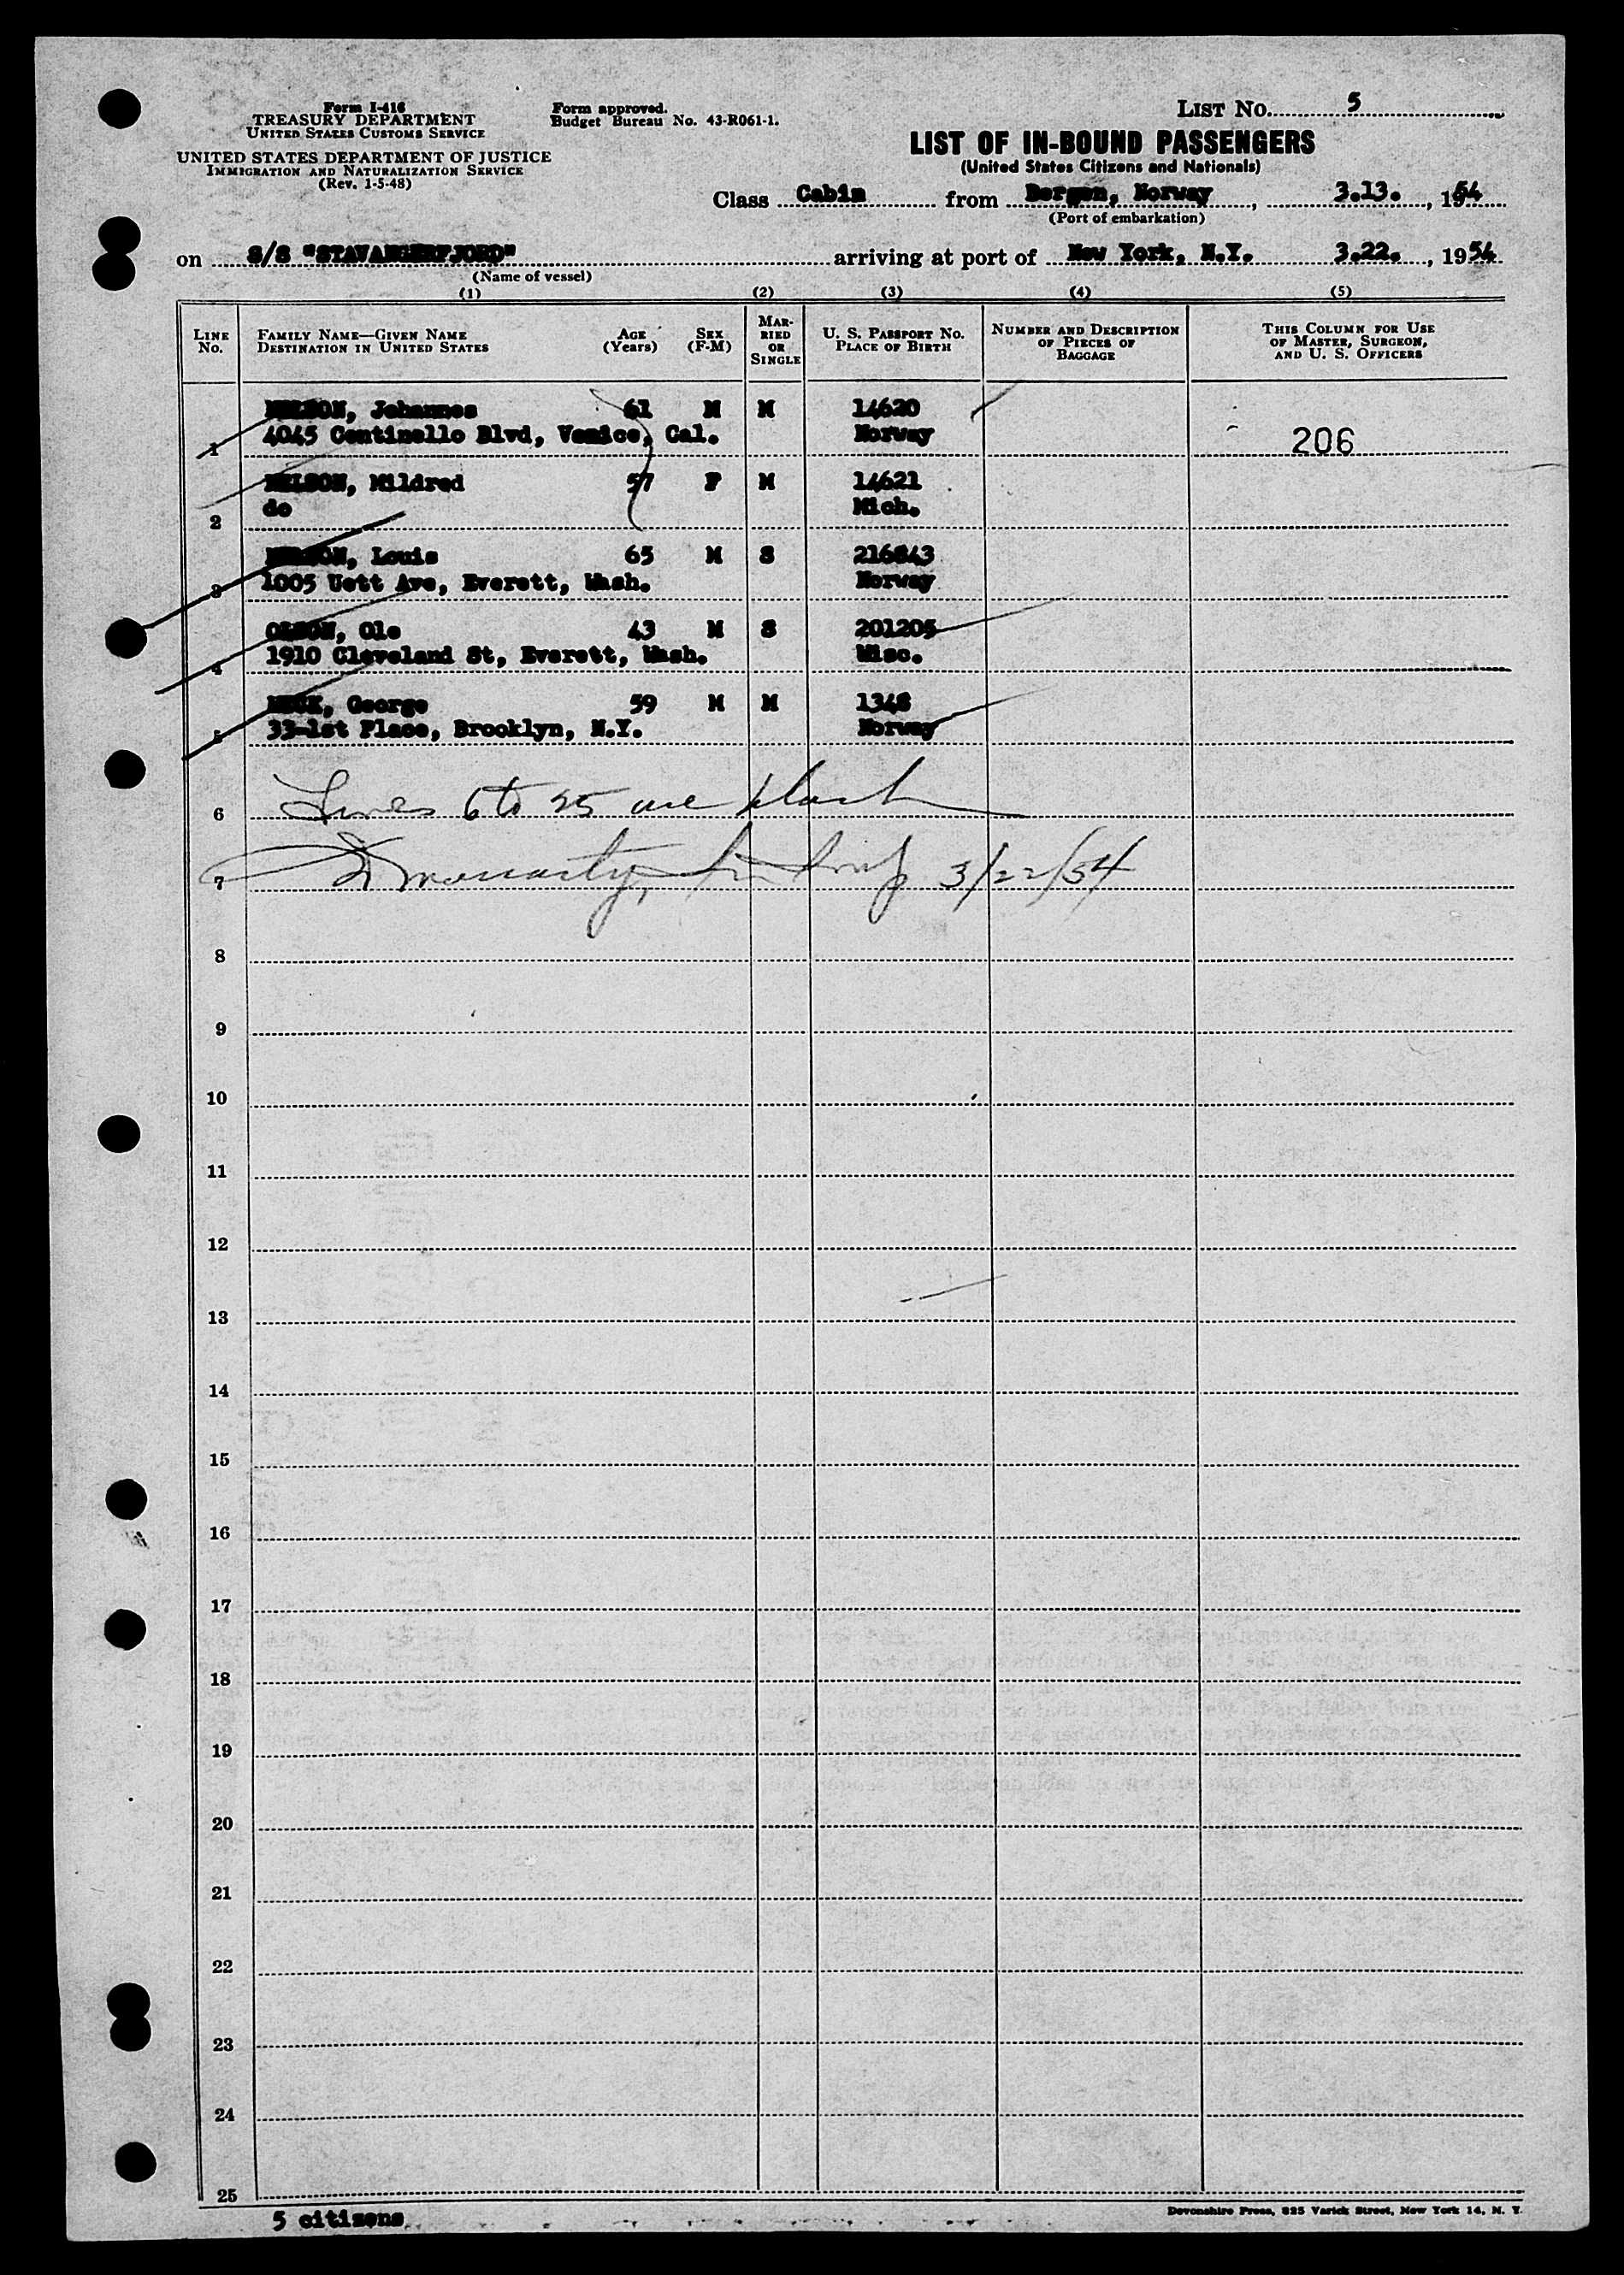 Form I-416
TREASURY DEPARTMENT
UNITED STATES CUSTOMS SERVICE
UNITED STATES DEPARTMENT OF JUSTICE
IMMIGRATION AND NATURALIZATION SERVICE
(Rev. 1-5-48)
Form approved.
Budget Bureau No. 43-R061-1.
LIST No. 5
LIST OF IN-BOUND PASSENGERS
(United States Citizens and Nationals)
Class Cabin from Bergen, Norway, 3.13., 1954
(Port of embarkation)
on S/S "STAVANGERFJORD" arriving at port of New York, N.Y. 3.22., 1954
(Name of vessel)
(1) (2) (3) (4) (5)
LINE No. FAMILY NAME—GIVEN NAME DESTINATION IN UNITED STATES AGE (Years) SEX (F-M) MARRIED OR SINGLE U. S. PASSPORT NO. PLACE OF BIRTH NUMBER AND DESCRIPTION OF PIECES OF BAGGAGE THIS COLUMN FOR USE OF MASTER, SURGEON, AND U. S. OFFICERS
NELSON, Johannes 61 M M 14620
1 4045 Centinello Blvd, Venice, Cal. Norway 206
NELSON, Mildred 57 F M 14621
2 do Mich.
Louis 65 M S 216843
3 1005 Ave, Everett, Wash. Norway
OLSON, Ole 43 M S 201205
4 1910 Cleveland St, Everett, Wash. Wisc.
George 59 M M 1348
5 33-1st Place, Brooklyn, N.Y. Norway
6 Lines 6 to 25 are blank
7 3/22/54
8
9
10
11
12
13
14
15
16
17
18
19
20
21
22
23
24
25
5 citizens
Devonshire Press, 825 Varick Street, New York 14, N. Y.